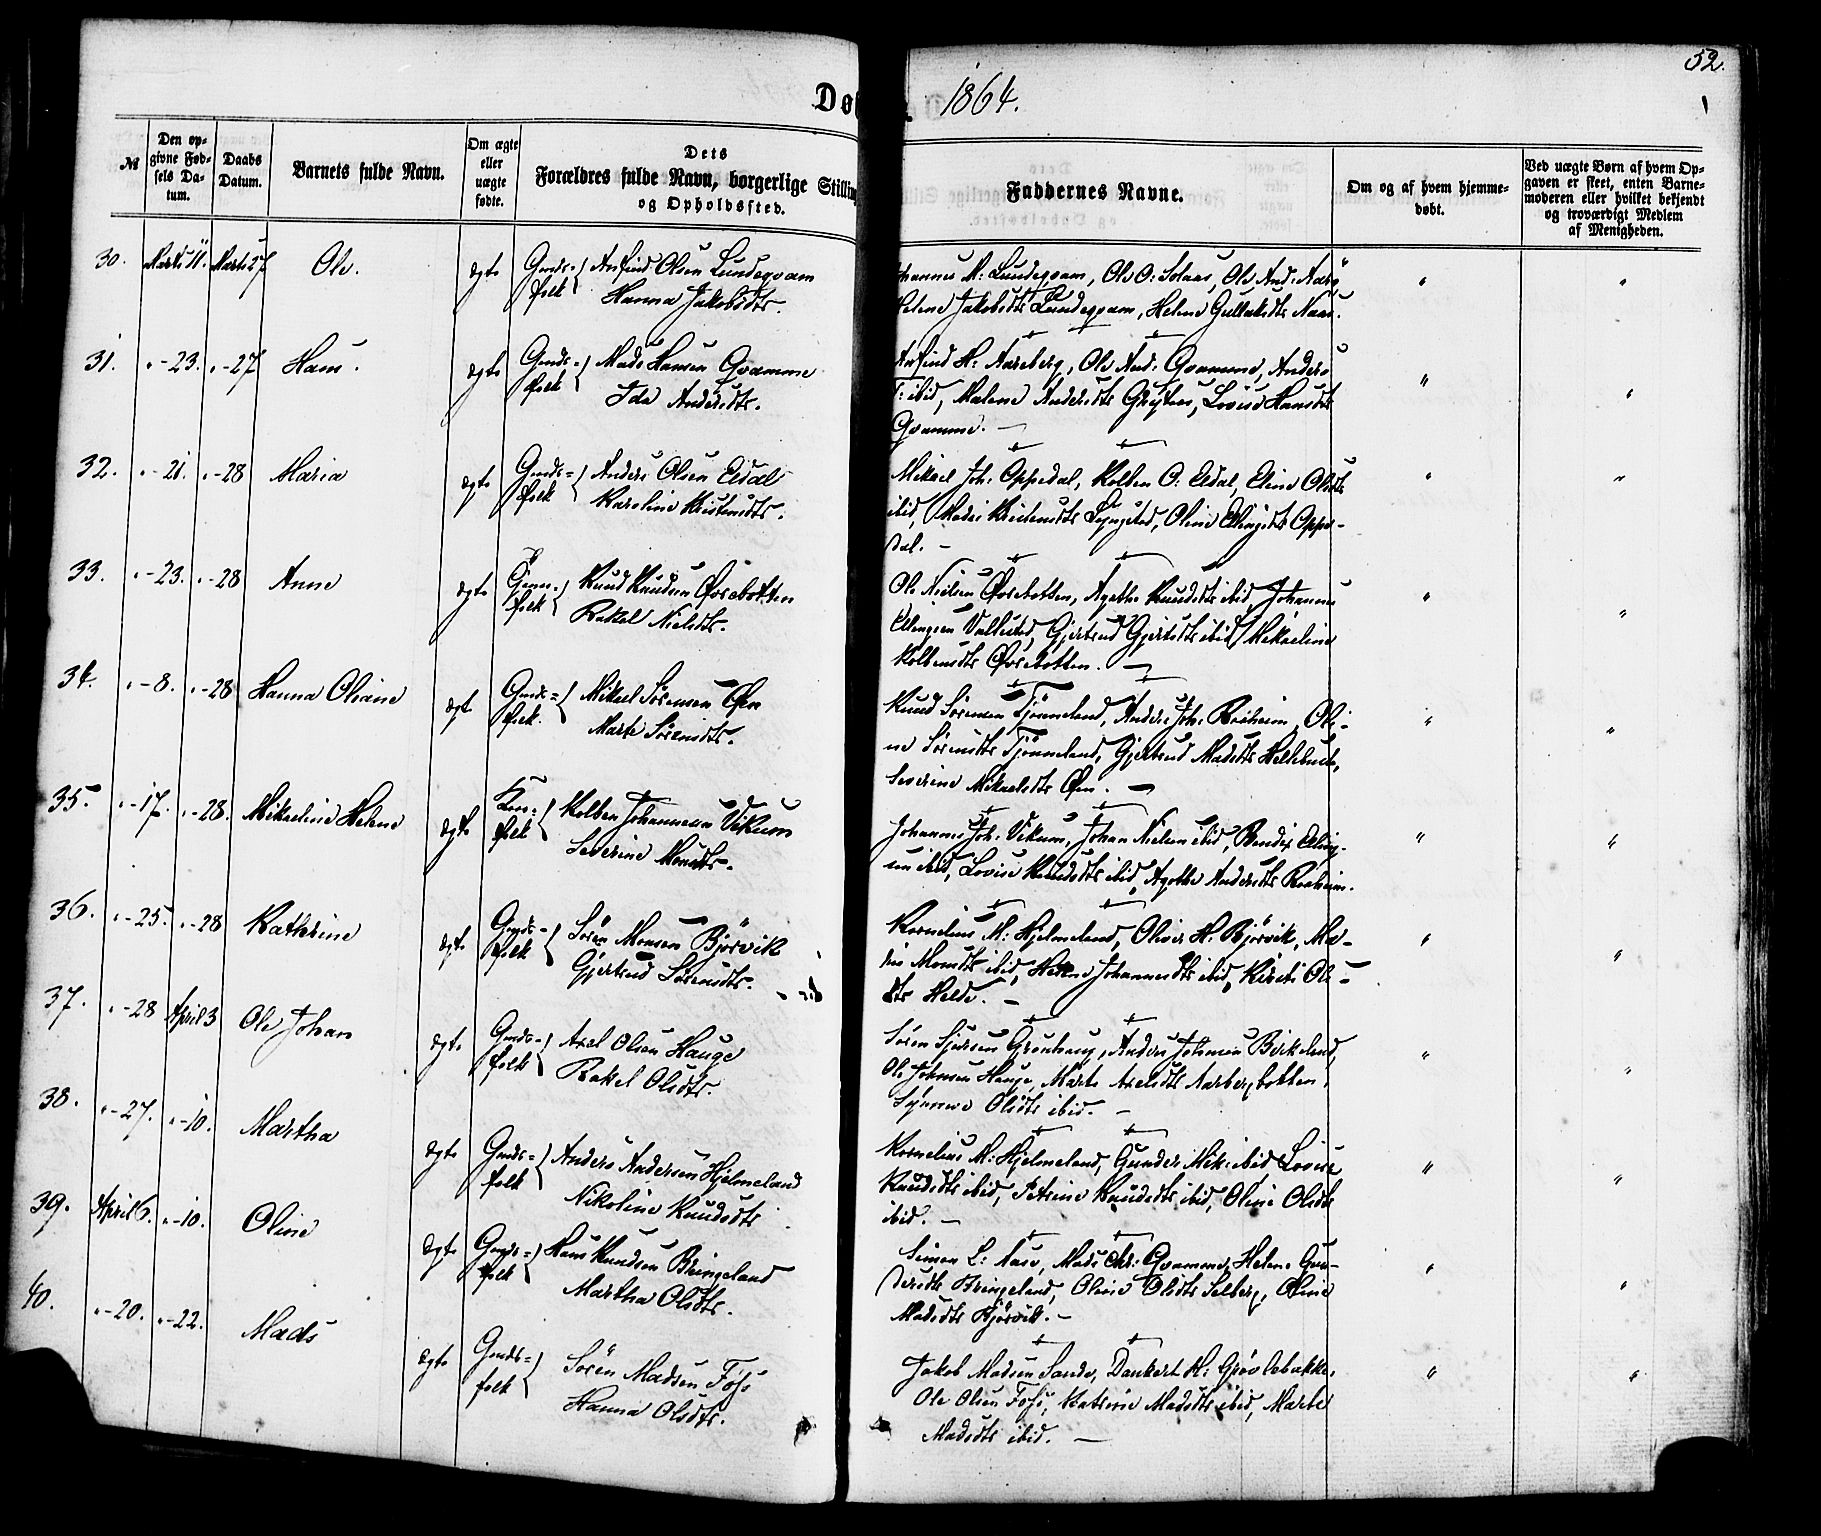 Dø
1864.
52.
№
Den opgivne Fødsels Datum.
Daabs Datum.
Barnets fulde Navn.
Om ægte eller uægte fødte.
Dets Forældres fulde Navn, borgerlige Stilling og Opholdssted.
Faddernes Navne.
Om og af hvem hjemmedøbt.
Ved uægte Børn af hvem Opgaven er skeet, enten Barnemoderen eller hvilket bekjendt og troværdigt Medlem af Menigheden.
30. Marts 11. Marts 27 Ole. ægte Gmds= folk Anfind Olsen Lundeqvam
Hanna Jakobsdtr.
Johannes M: Lundeqvam, Ole O: Solaas, Ole And:
Helene Jakobsdtr Lundeqvam, Helene
31. "-23. "-27 Hans. ægte Gmds= folk Mads Hansen Qvamme
Ida Andersdtr.
Anfind H: Aarsberg, Ole And: Qvamme, Anders
T: ibid, Malene Andersdtr Lovise Hansdtr
Qvamme. —
32. "-21. "-28 Maria ægte Gmds= folk Anders Olsen Eldal
Karoline Kristensdtr.
Mikael Joh: Oppedal, Kolben O: Eldal, Eline Olsdtr
ibid, Oline Ellingsdtr Oppe-
dal. —
33. "-23. "-28 Anne ægte folk Knud Knudsen Øvrebotten
Rakel Nielsdtr.
Ole Nielsen Øvrebotten, Agathe Knudsdtr ibid, Johannes
Ellingsen Vallestad, Gjertrud Gjertsdtr ibid, Mikaeline
Kolbensdtr Øvrebotten. —
34. "-8. "-28 Hanna Oliane ægte Gmds= folk. Mikael Sørensen Øen
Marte Sørensdtr.
Knud Sørensen Tjønneland, Anders Joh: Roeheim, Oli-
ne Sørensdtr Tjønneland, Gjertrud Madsdtr
Severine Mikaelsdtr Øen. —
35. "-17. "-28. Mikaeline Helene ægte folk Kolben Johannesen Vikum
Severine Monsdtr.
Johannes Joh: Vikum, Johan Nielsen ibid, Bendix Elling-
sen ibid, Lovise Knudsdtr ibid, Agathe Andersdtr Roeheim.
36. "-25. "-28 Kathrine ægte Gmds= folk Søren Monsen Bjørvik
Gjertrud Sørensdtr.
Kornelius M: Hjelmeland, Oliver H: Bjørvik, Ma-
Monsdtr ibid, Helene Johannesdtr ibid, Kirsti Ols-
dtr Helde. —
37. "-28 April 3 Ole Johan ægte Gmds= folk Axel Olsen Hauge
Rakel Olsdtr.
Søren Sjursen Grønhaug, Anders Johnsen Birkeland,
Ole Johnsen Hauge, Marte Axelsdtr Aarbergsbotten,
Synneve Olsdtr ibid. —
38. "-27. "-10. Martha ægte Gmds= folk Anders Andersen Hjelmeland
Nikoline Knudsdtr
Kornelius M: Hjelmeland, Gunder Mik: ibid Lovise
Knudsdtr ibid, Petrine Knudsdtr ibid, Oline Olsdtr
ibid. —
39. April 6. "-10. Oline ægte Gmds= folk Hans Knudsen Bringeland
Martha Olsdtr.
Simon L: Aase, Mads Chr: Qvamme, Helene Gun-
dersdtr Bringeland, Oline Olsdtr Selberg, Oline
Madsdtr Bjørvik. —
40. "-20. "-22. Mads ægte Gmds= folk Søren Madsen Fos
Hanna Olsdtr.
Jakob Madsen Sande, Dankert M: Grøvlebakke,
Ole Olsen Fos, Katrine Madsdtr ibid, Marte
Madsdtr ibid. —